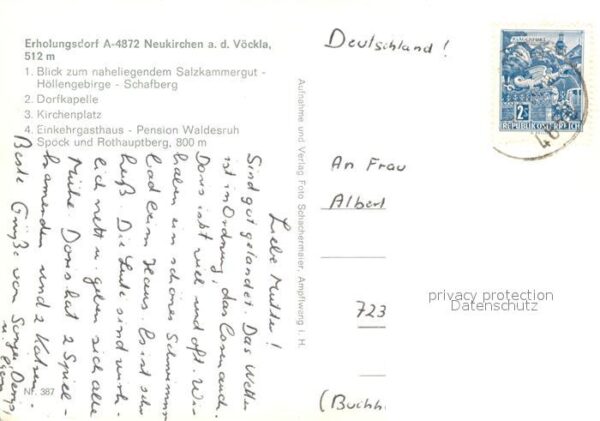 Erholungsdorf A-4872 Neukirchen a. d. Vöckla,
512 m
1. Blick zum naheliegendem Salzkammergut -
Höllengebirge - Schafberg
2. Dorfkapelle
3. Kirchenplatz
4. Einkehrgasthaus - Pension Waldesruh
Spöck und Rothauptberg, 800 m
Liebe Mutter!
Sind gut gelandet. Das Wetter
ist in Ordnung, das Essen auch.
Doris ißt viel und oft. Wir
haben ein schönes Schwimm-
bad beim Haus. Es ist sehr
heiß. Die Leute sind wirk-
lich nett u. geben sich alle
Mühe. Doris hat 2 Spiel-
kameraden und 2 Katzen.
Beste Grüße von
u.
Nr. 387
Aufnahme und Verlag Foto Schachermaier, Ampflwang i. H.
Deutschland!
REPUBLIK OESTERREICH
2
An Frau
Albert
723
(Buchh
privacy protection
Datenschutz